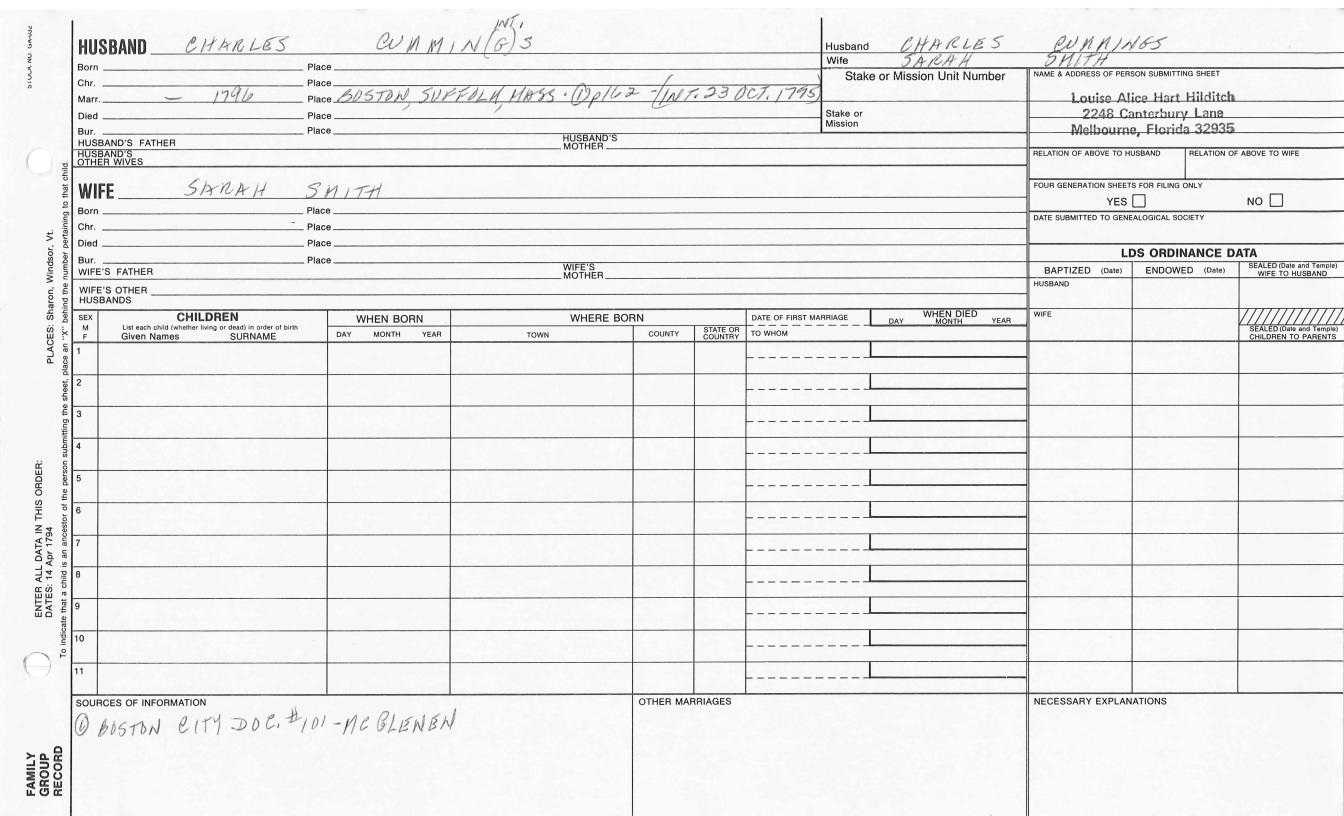 STOCK NO. GR402
HUSBAND CHARLES CUMMIN(G)S INT.
Born Place
Chr. Place
Marr. — 1796 Place BOSTON, SUFFOLK, MASS. ① p162 - (INT. 23 OCT. 1795)
Died Place
Bur. Place
HUSBAND'S FATHER HUSBAND'S MOTHER
HUSBAND'S OTHER WIVES
WIFE SARAH SMITH
Born Place
Chr. Place
Died Place
Bur. Place
WIFE'S FATHER WIFE'S MOTHER
WIFE'S OTHER HUSBANDS
Husband CHARLES CUMMINGS
Wife SARAH SMITH
Stake or Mission Unit Number
Stake or Mission
NAME & ADDRESS OF PERSON SUBMITTING SHEET
Louise Alice Hart Hilditch
2248 Canterbury Lane
Melbourne, Florida 32935
RELATION OF ABOVE TO HUSBAND RELATION OF ABOVE TO WIFE
FOUR GENERATION SHEETS FOR FILING ONLY
YES NO
DATE SUBMITTED TO GENEALOGICAL SOCIETY
LDS ORDINANCE DATA
BAPTIZED (Date) ENDOWED (Date) SEALED (Date and Temple) WIFE TO HUSBAND
HUSBAND
WIFE
SEALED (Date and Temple) CHILDREN TO PARENTS
SEX M F
CHILDREN
List each child (whether living or dead) in order of birth
Given Names SURNAME
WHEN BORN
DAY MONTH YEAR
WHERE BORN
TOWN COUNTY STATE OR COUNTRY
DATE OF FIRST MARRIAGE
TO WHOM
WHEN DIED
DAY MONTH YEAR
1
2
3
4
5
6
7
8
9
10
11
SOURCES OF INFORMATION
① BOSTON CITY DOC. #101 - MCGLENEN
OTHER MARRIAGES
NECESSARY EXPLANATIONS
FAMILY GROUP RECORD
ENTER ALL DATA IN THIS ORDER:
DATES: 14 Apr 1794
PLACES: Sharon, Windsor, Vt.
To indicate that a child is an ancestor of the person submitting the sheet, place an "X" behind the number pertaining to that child.